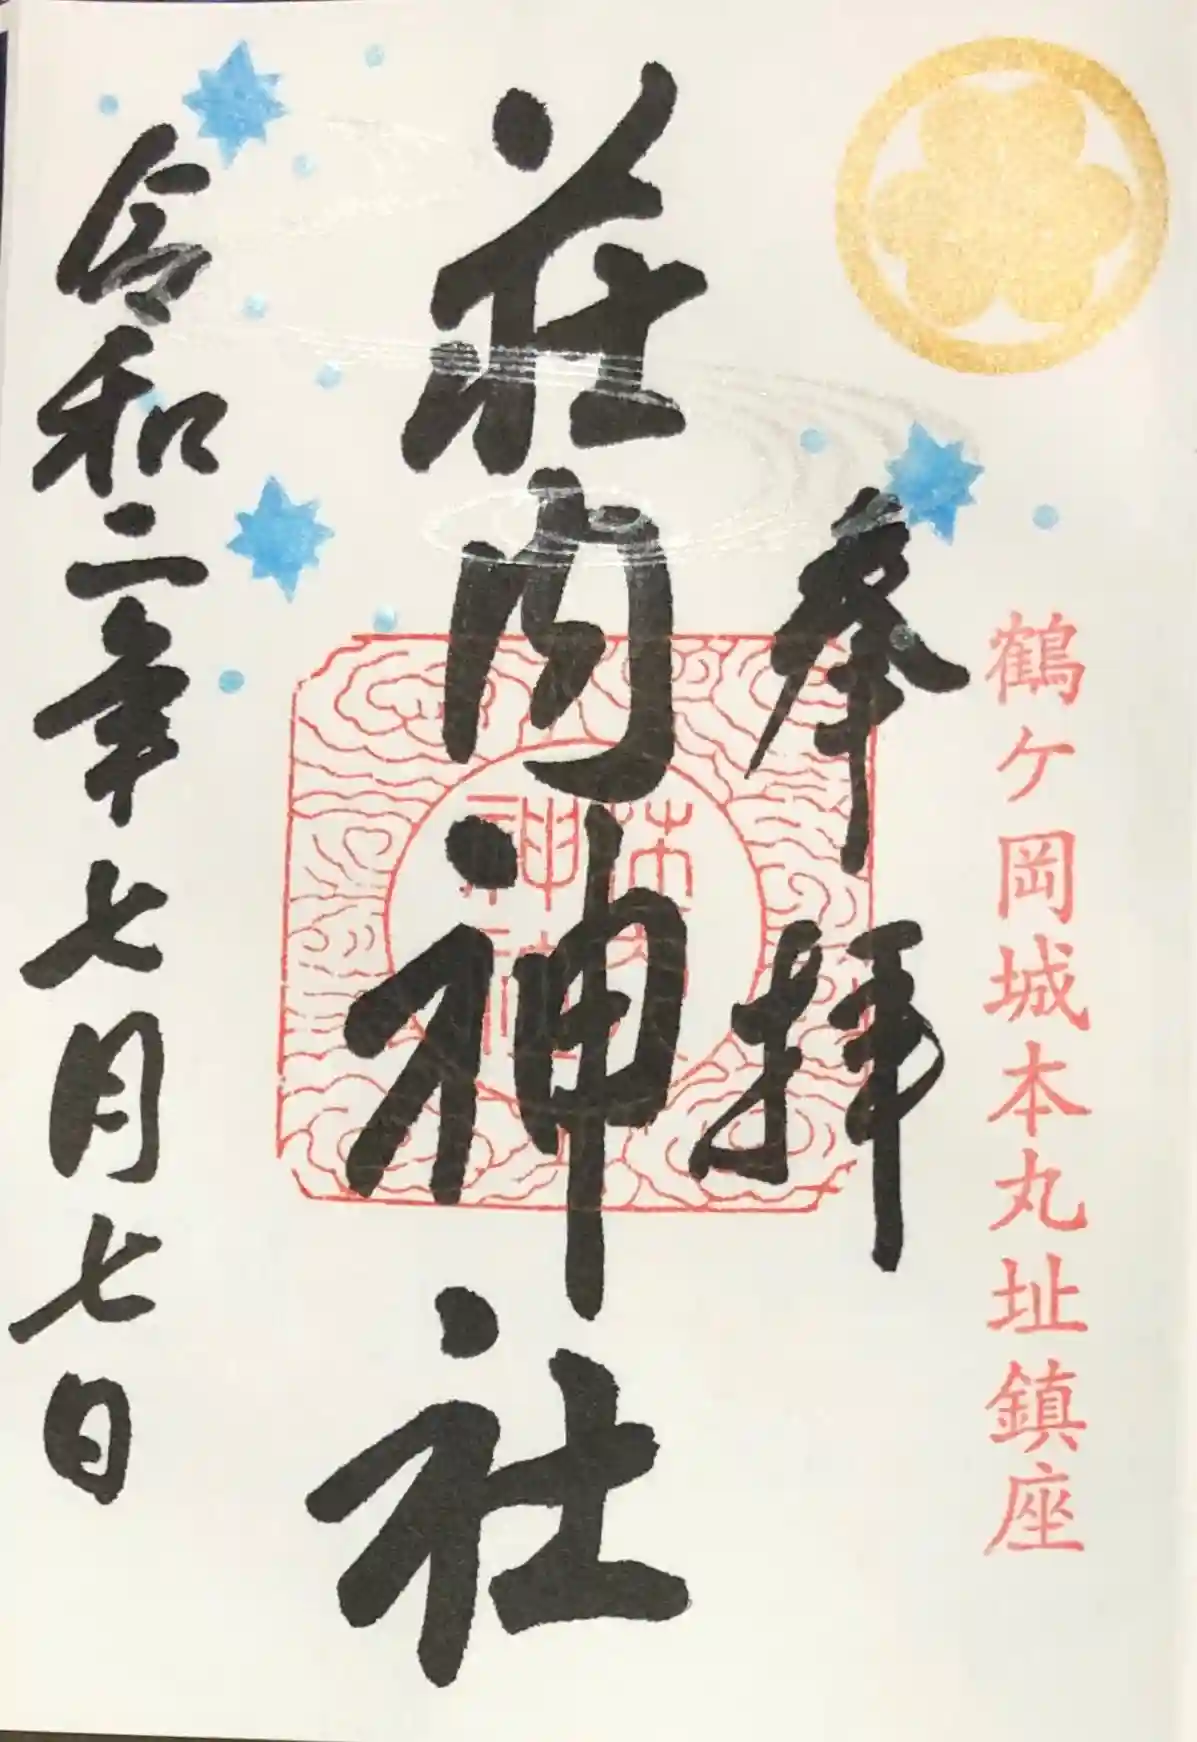 鶴ケ岡城本丸址鎮座
奉拝
荘内神社
令和二年七月七日